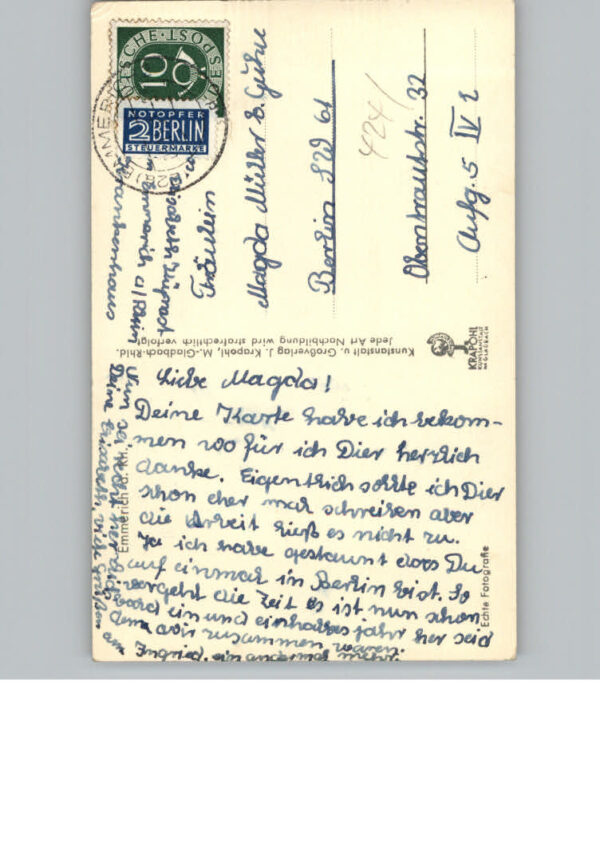 DEUTSCHE BUNDESPOST
10
NOTOPFER
2 BERLIN
STEUERMARKE
EMMERICH
Elisabeth
Emmerich a/Rhein
Krankenhaus
Fräulein
Magda Müller b.
Berlin SW 61
Obentrautstr. 32
Aufg. 5 IV
424/
Kunstanstalt u. Großverlag J. Krapohl, M.-Gladbach-Rhld.
Jede Art Nachbildung wird strafrechtlich verfolgt
KRAPOHL
KUNSTANSTALT
M.GLADBACH
Emmerich a. Rh.
Echte Fotografie
Liebe Magda!
Deine Karte habe ich bekom-
men wo für ich Dier herzlich
danke. Eigentlich sollte ich Dier
schon eher mal schreiben aber
die Arbeit ließ es nicht zu.
Ja ich habe gestaunt das Du
auf einmal in Berlin bist. So
vergeht die Zeit es ist nun schon
bald ein und einhalbes jahr her seid
dem wir zusammen waren.
an Ingried, ein andermal mehr.
Nun sei herzlich
Deine Elisabeth, viele Grüßen